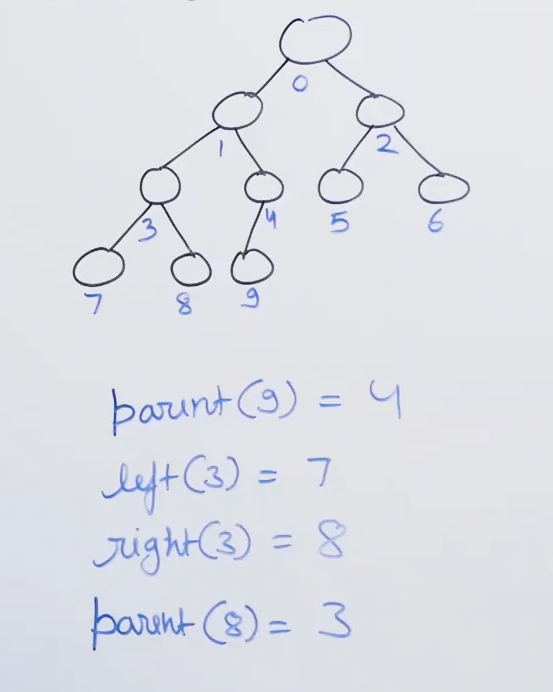 0
1 2
3 4 5 6
7 8 9
parent(9) = 4
left(3) = 7
right(3) = 8
parent(8) = 3